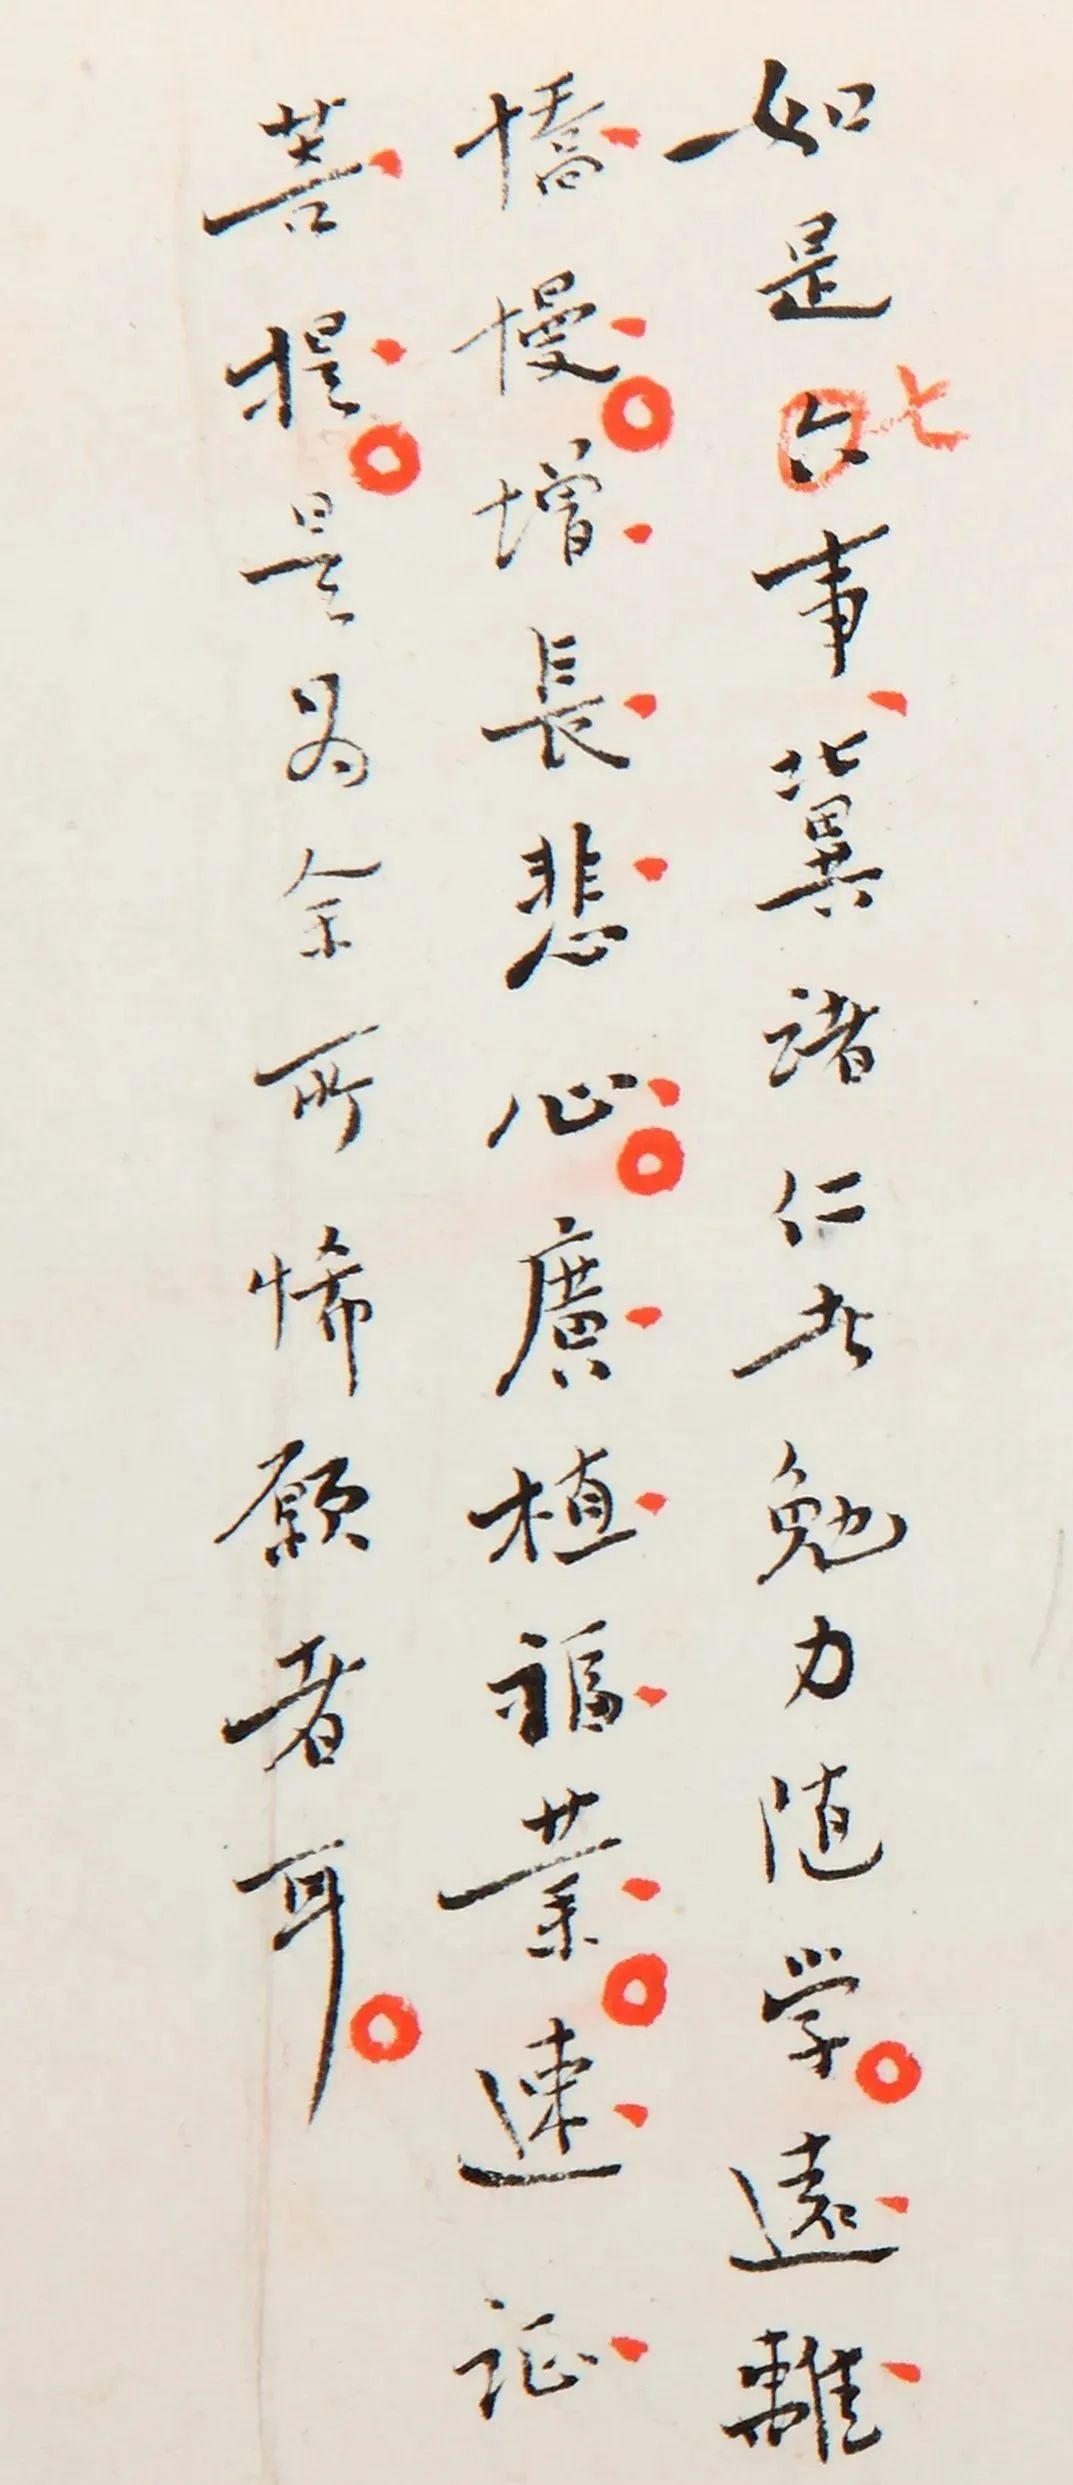 如是六七事、冀諸仁者勉力随学。遠離
憍慢。增長悲心。廣植福業。速証
菩提。是為余所悕願者耳。